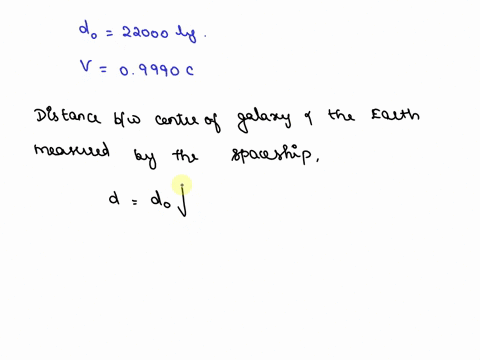 d₀ = 22000 ly.
V = 0.9990 C
Distance b/w centre of galaxy & the Earth
measured by the spaceship.
d = d₀ √